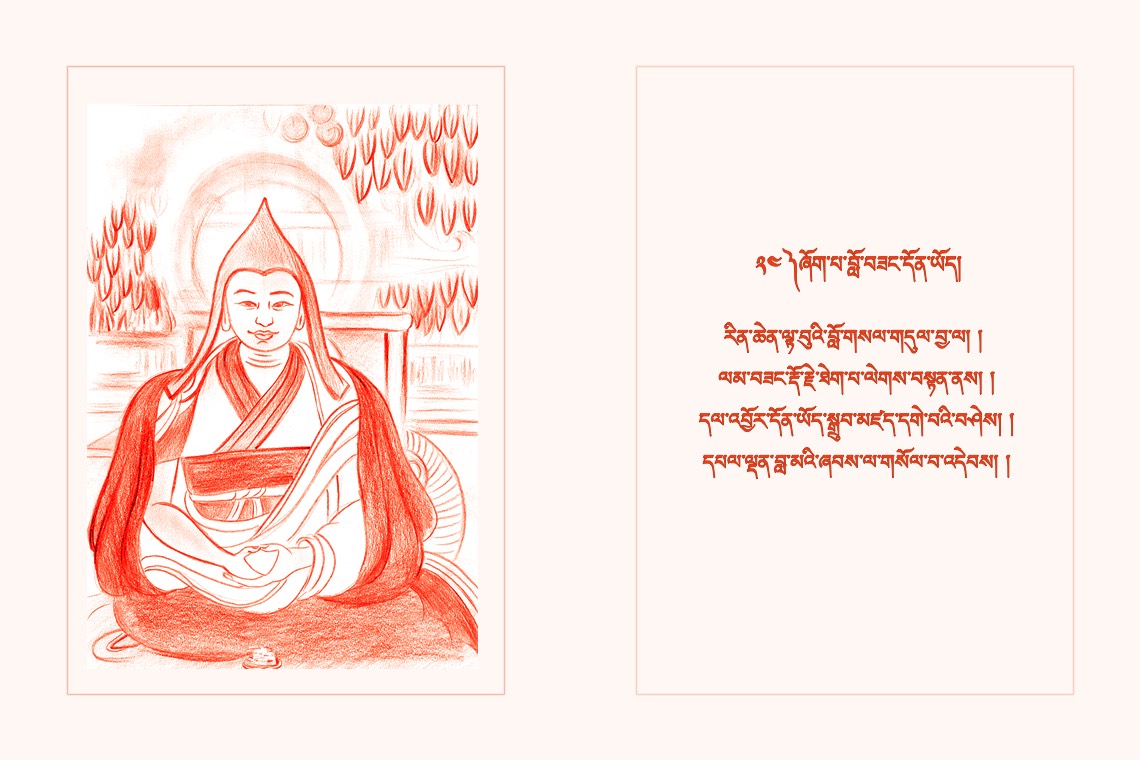 ༢༤ ༽ཞོག་པ་བློ་བཟང་དོན་ཡོད།
རིན་ཆེན་ལྟ་བུའི་བློ་གསལ་གདུལ་བྱ་ལ། །
ལམ་བཟང་རྡོ་རྗེ་ཐེག་པ་ལེགས་བསྟན་ནས། །
དལ་འབྱོར་དོན་ཡོད་སྒྲུབ་མཛད་དགེ་བའི་བཤེས། །
དཔལ་ལྡན་བླ་མའི་ཞབས་ལ་གསོལ་བ་འདེབས། །